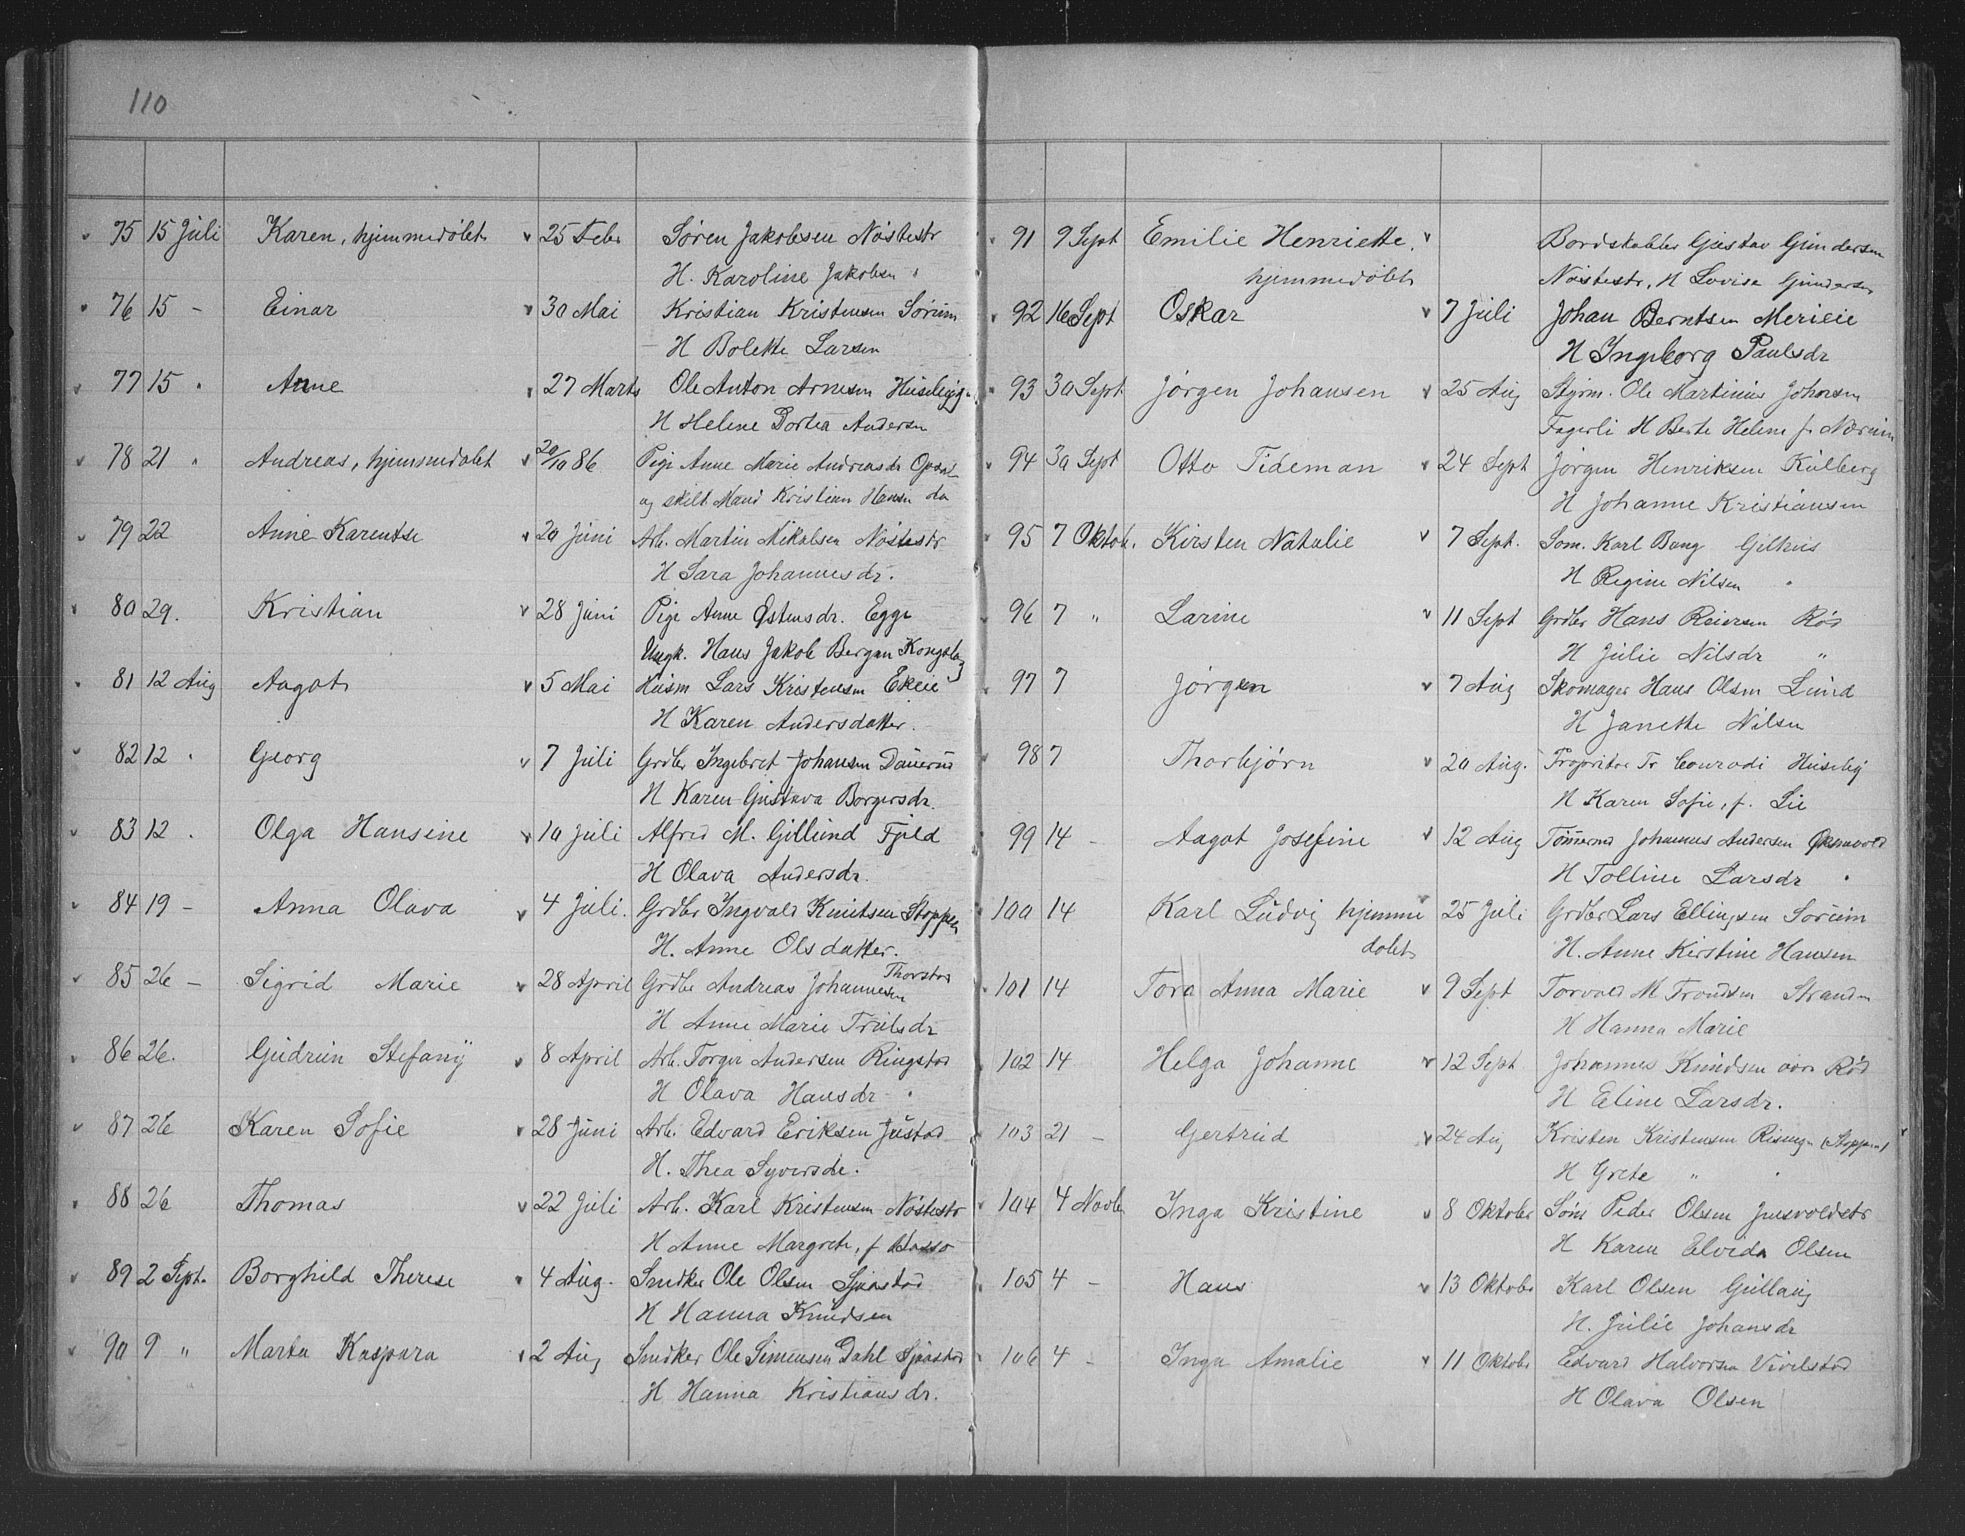 110
75 15 Juli Karen, hjemmedøbt 25 Febr Søren Jakobsen Nøstestr
H. Karoline Jakobsen "
76 15 - Einar 30 Mai Kristian Kristensen Sørum
H Bolette Larsen
77 15 " Anne 27 Marts Ole Anton Arnesen Huseby
H Helene Dortea Andersen
78 21 " Andreas, hjemmedøbt 20/10 86 Pige Anne Marie Andreasdr
og skilt Mand Kristian Hansen do
79 22 Anne Karentse 20 Juni Arb. Martin Mikalsen Nøstestr
H Sara Johannesdr.
80 29. Kristian 28 Juni Pige Anne Østensdr. Egge
Ungk. Hans Jakob Bergan Kongsberg
81 12 Aug Aagot 5 Mai Husm Lars Kristensen Ekeie
H Karen Andersdatter.
82 12 " Georg 7 Juli Grdbr Ingebret Johansen Dauerud
H Karen Gustava Borgersdr.
83 12 " Olga Hansine 10 Juli Alfred M. Gillund Fjeld
H Olava Andersdr.
84 19 - Anna Olava 4 Juli. Grdbr Ingvald Knutsen Stoppen
H. Anne Olsdatter.
85 26 - Sigrid Marie 28 April Grdbr Andreas Johannesen Thorstad
H Anne Marie Trulsdr
86 26. Gudrun Stefany 8 April Arb. Torger Andersen Ringstad
H Olava Hansdr "
87 26 Karen Sofie 28 Juni Arb. Edvard Eriksen Justad
H. Thea Syversdr.
88 26 Thomas 22 Juli Arb. Karl Kristensen Nøstestr
H Anne Margrete, f Basso
89 2 Sept. Borghild Therese 4 Aug. Snedker Ole Olsen Sjaastad
H Hanna Knudsen
90 9 " Marta Kaspara 2 Aug Snedker Ole Simensen Dahl Sjaastad
H Hanna Kristiansdr.
91 9 Sept Emilie Henriette, Bordskabler Gustav Gundersen
hjemmedøbt Nøstestr, H Lovise Gundersen
92 16 Sept Oskar 7 Juli Johan Berntsen Merieie
H Ingeborg Paulsdr
93 30 Sept Jørgen Johansen 25 Aug Styrm. Ole Martinius Johansen
Fagerli H Berte Helene f. Nærum
94 30 Sept Otto Tideman 24 Sept Jørgen Henriksen Kulberg
H Johanne Kristiansen
95 7 Oktob. Kirsten Natalie 7 Sept. Søm. Karl Bang Gilhus
H Regine Nilsen "
96 7 " Larine 11 Sept Grdbr Hans Reiersen Rød
H Julie Nilsdr "
97 7 Jørgen 7 Aug Skomager Hans Olsen Lund
H Janette Nilsen
98 7 Thorbjørn 20 Aug. Propritær Fr Conradi Huseby
H Karen Sofie, f. Lie
99 14 - Aagot Josefine 12 Aug Tømmermd Johannes Andersen Øksnevold
H Tolline Larsdr "
100 14 Karl Ludvig hjemme 25 Juli Grdbr Lars Ellingsen Sørum
døbt H. Anne Kirstine Hansen
101 14 Tora Anna Marie 9 Sept Torvald M Trondsen Stranden
H Hanna Marie
102 14 Helga Johanne 12 Sept Johannes Knudsen øvre Rød
H Eline Larsdr.
103 21 - Gertrud 24 Aug Kristen Kristensen (Stoppen)
H Grete " "
104 4 Novb Inga Kristine 8 Oktober Søm Peder Olsen
H Karen Elvida Olsen
105 4 - Hans 13 Oktober Karl Olsen Gullaug
H. Julie Johansdr
106 4 - Inga Amalie 11 Oktober Edvard Halvorsen Vivelstad
H Olava Olsen